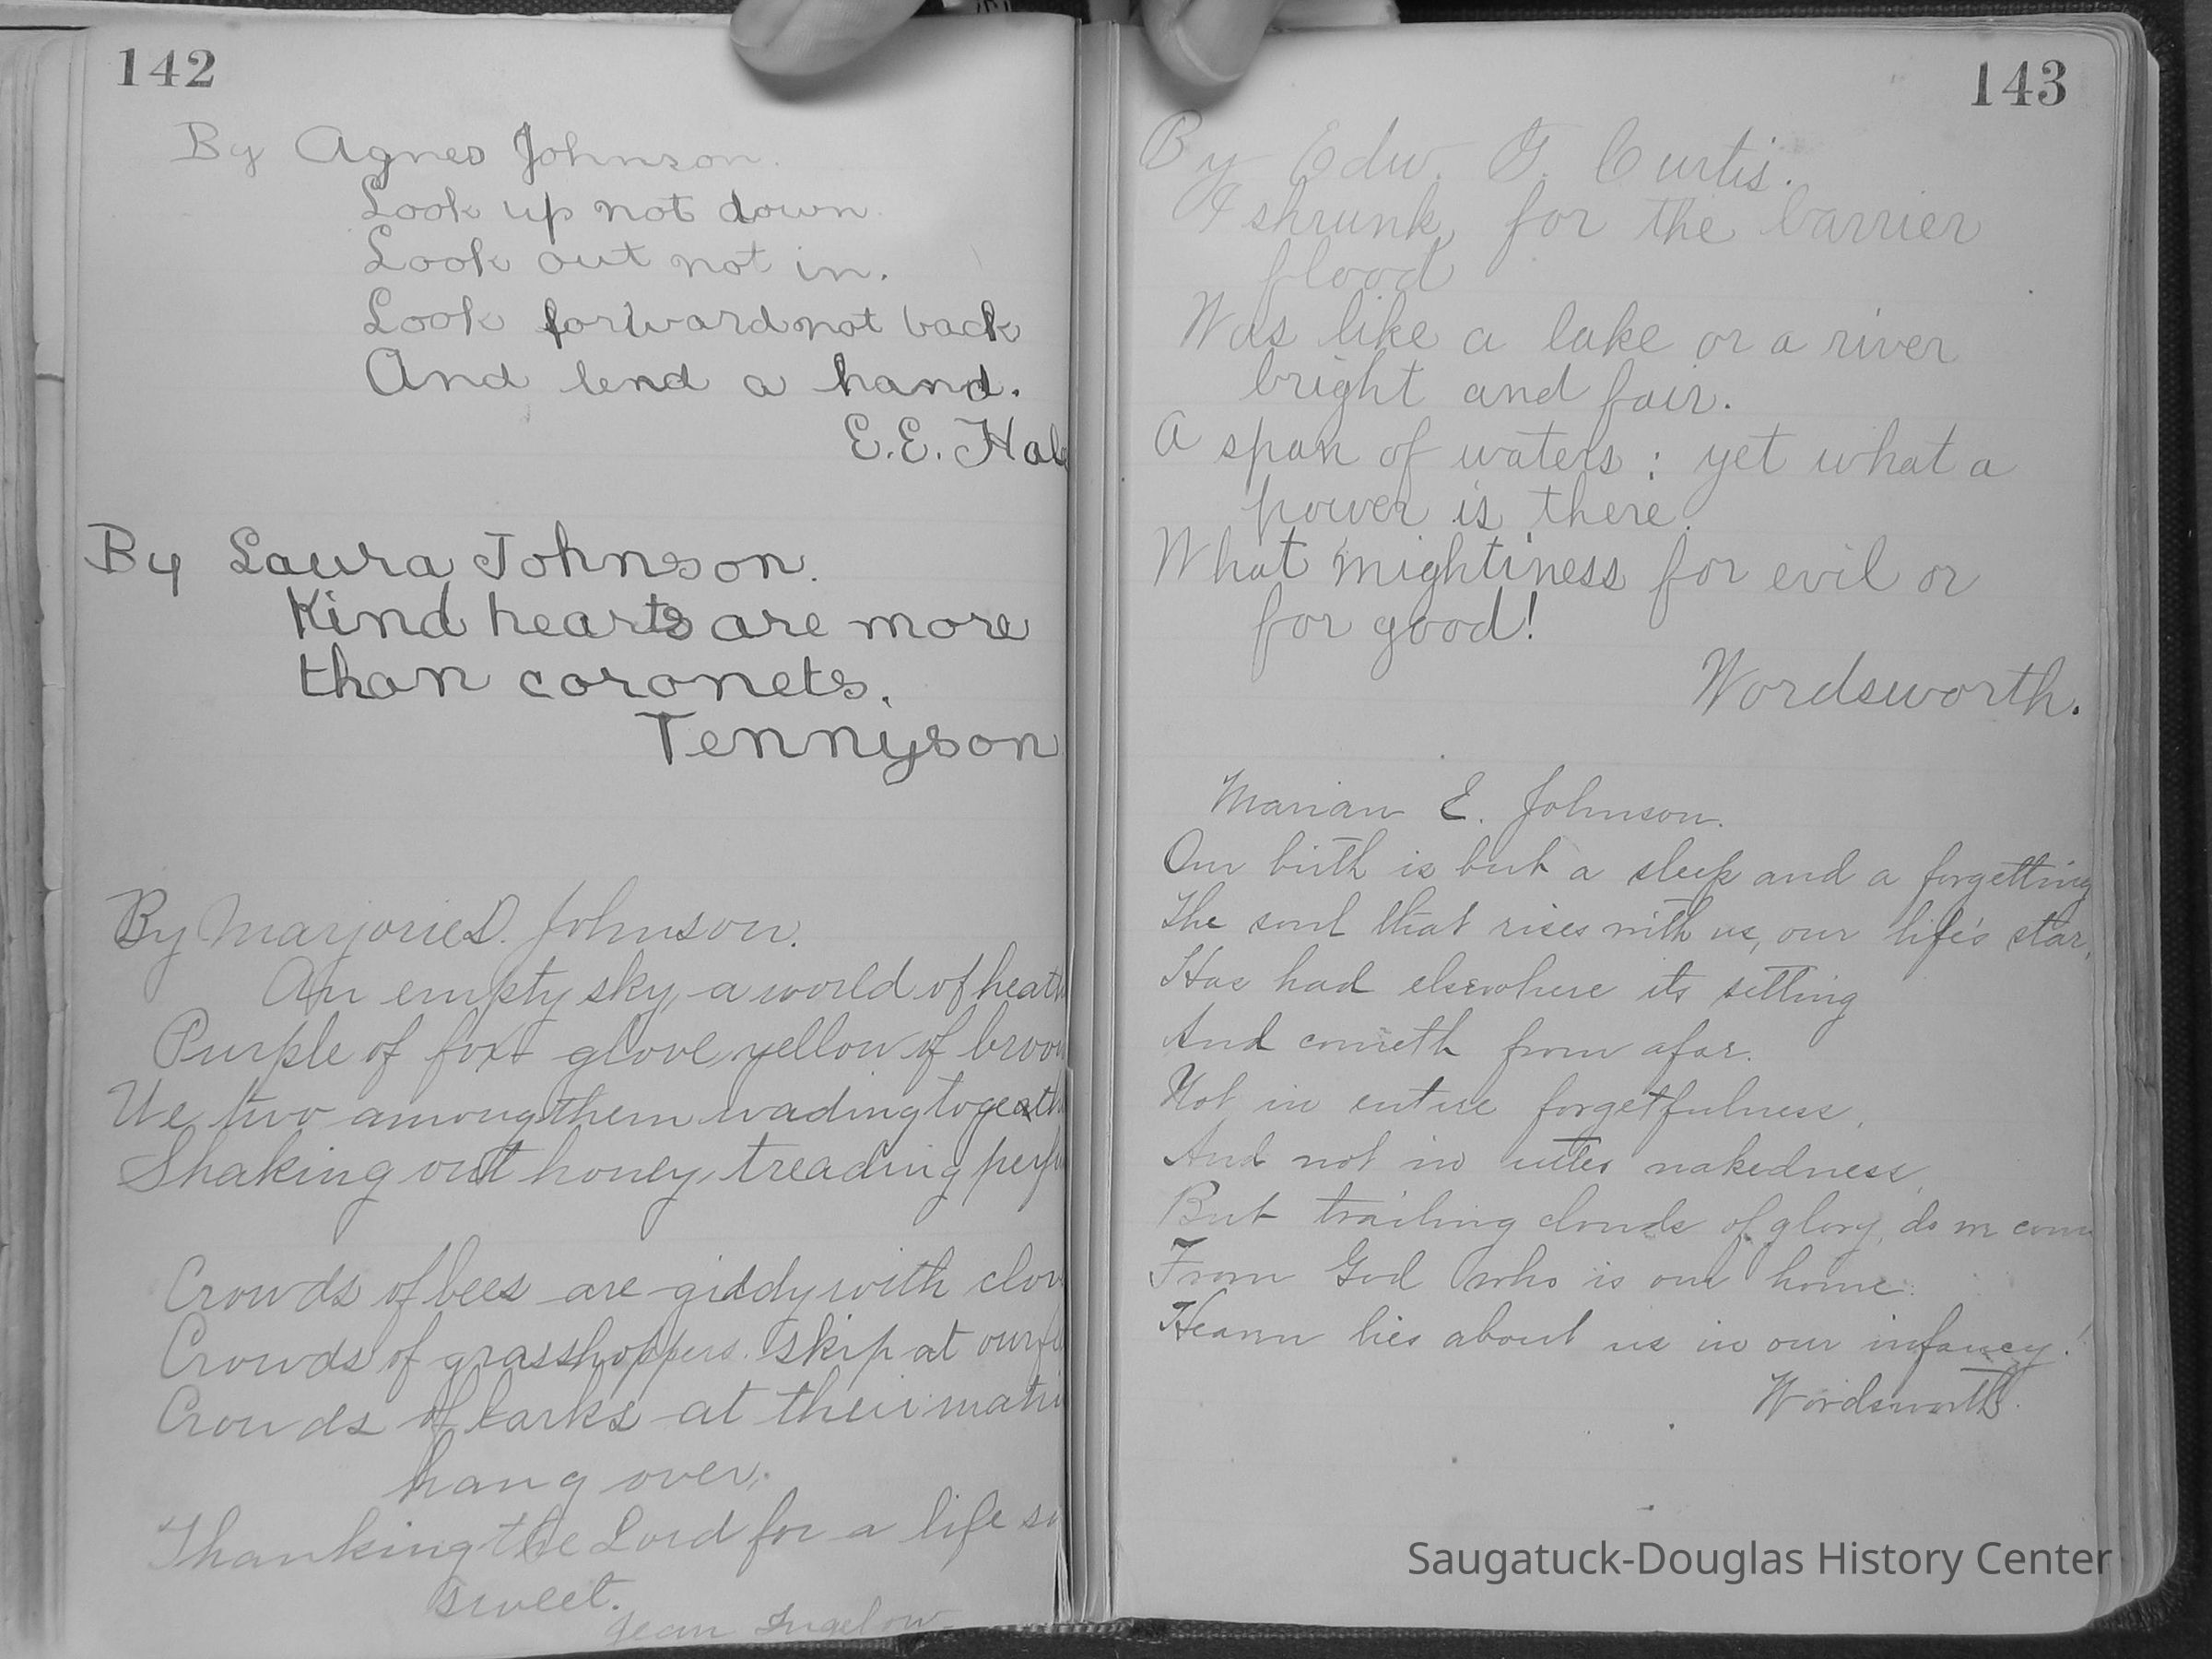 142
By Agnes Johnson.
Look up not down
Look out not in.
Look forward not back
And lend a hand.
E.E. Hal
By Laura Johnson.
Kind hearts are more
than coronets.
Tennyson
By Marjorie D. Johnson.
An empty sky, a world of heath
Purple of fox glove yellow of broo
We two among them wading togeath
Shaking out honey, treading perfu
Crowds of bees are giddy with clov
Crowds of grasshoppers skip at our f
Crowds of larks at their mati
hang over,
Thanking the Lord for a life so
sweet.
Jean Ingelow
143
By Edw. G. Curtis.
I shrunk, for the barrier
flood
Was like a lake or a river
bright and fair.
A span of waters; yet what a
power is there.
What mightiness for evil or
for good!
Wordsworth.
Marian E. Johnson.
Our birth is but a sleep and a forgetting
The soul that rises with us, our life's star,
Has had elsewhere its setting
And cometh from afar.
Not in entire forgetfulness,
And not in utter nakedness,
But trailing clouds of glory, do we come
From God who is our home:
Heaven lies about us in our infancy!
Wordsworth.
Saugatuck-Douglas History Center